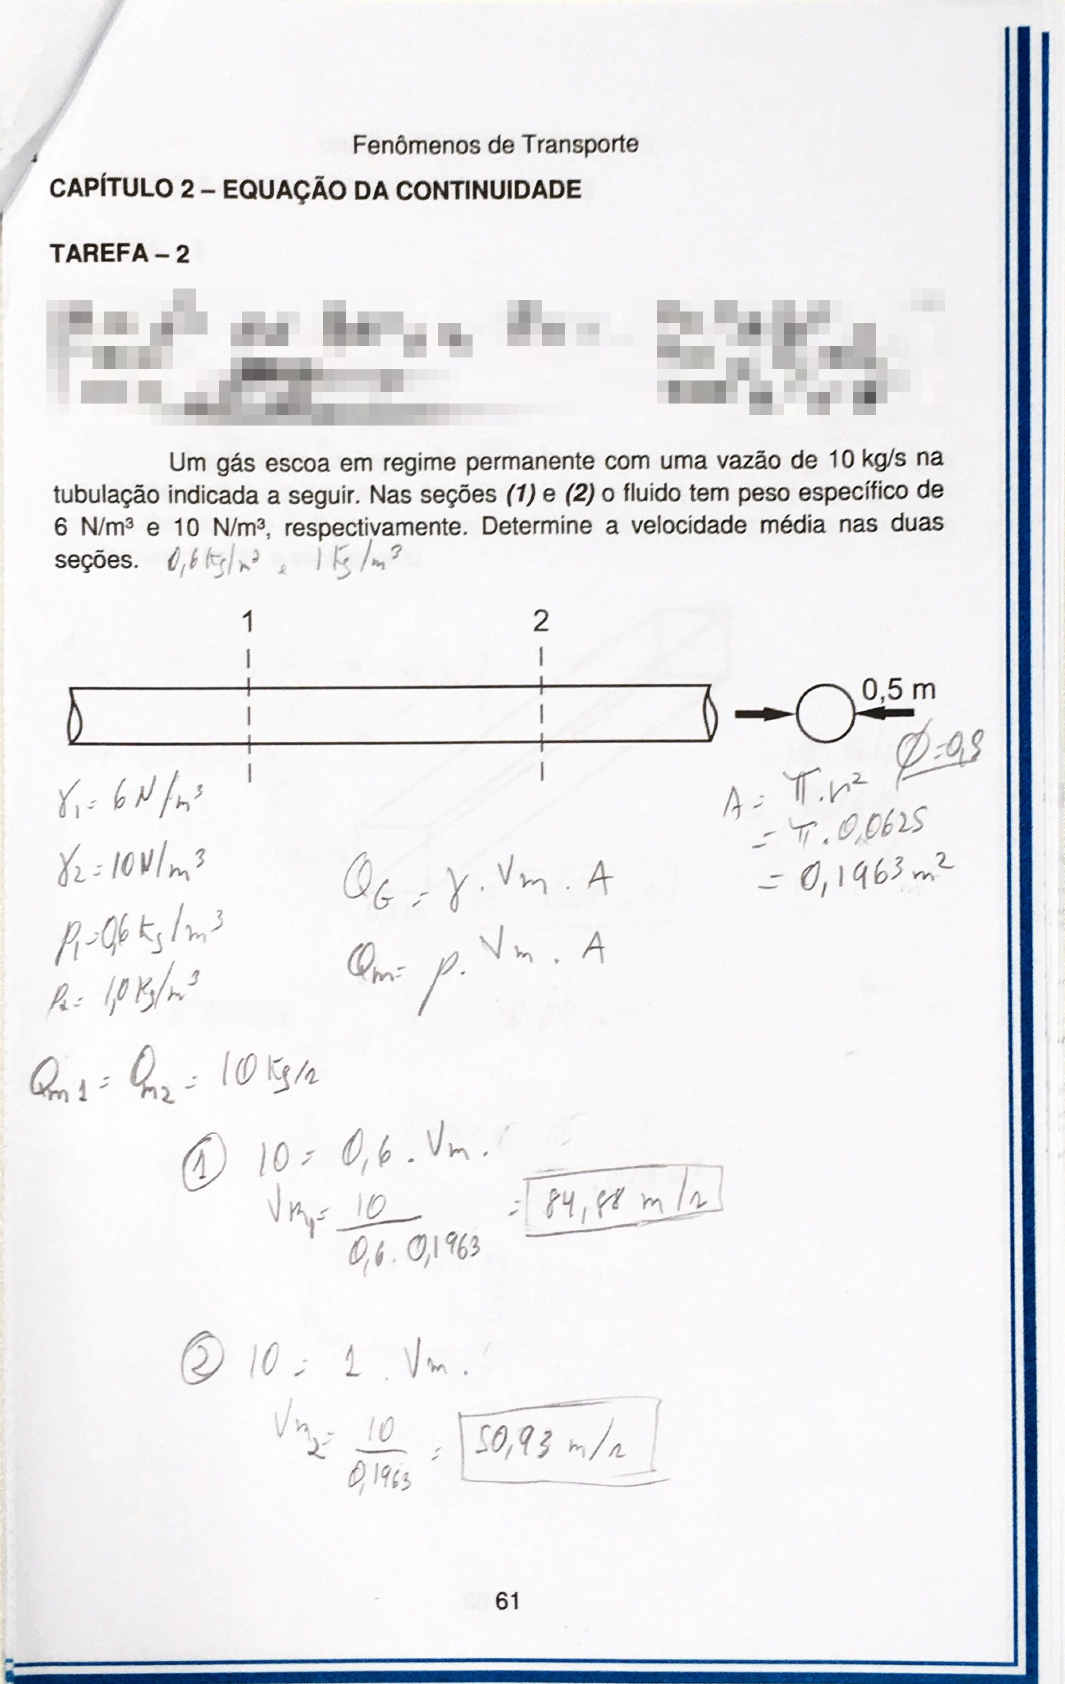 Fenômenos de Transporte
CAPÍTULO 2 – EQUAÇÃO DA CONTINUIDADE
TAREFA – 2
Um gás escoa em regime permanente com uma vazão de 10 kg/s na
tubulação indicada a seguir. Nas seções (1) e (2) o fluido tem peso específico de
6 N/m³ e 10 N/m³, respectivamente. Determine a velocidade média nas duas
seções. 0,6 kg/m³ e 1 kg/m³
1 2
0,5 m
Ø=0,5
γ1= 6 N/m³
A = π.r²
= π.0,0625
= 0,1963 m²
γ2=10N/m³
QG = γ.Vm.A
ρ1=0,6 kg/m³
Qm= ρ.Vm.A
ρ2= 1,0 kg/m³
Qm1 = Qm2 = 10 kg/s
① 10 = 0,6 . Vm.
Vm1= 10 / 0,6 . 0,1963 = 84,88 m/s
② 10 = 1 . Vm.
Vm2= 10 / 0,1963 = 50,93 m/s
61